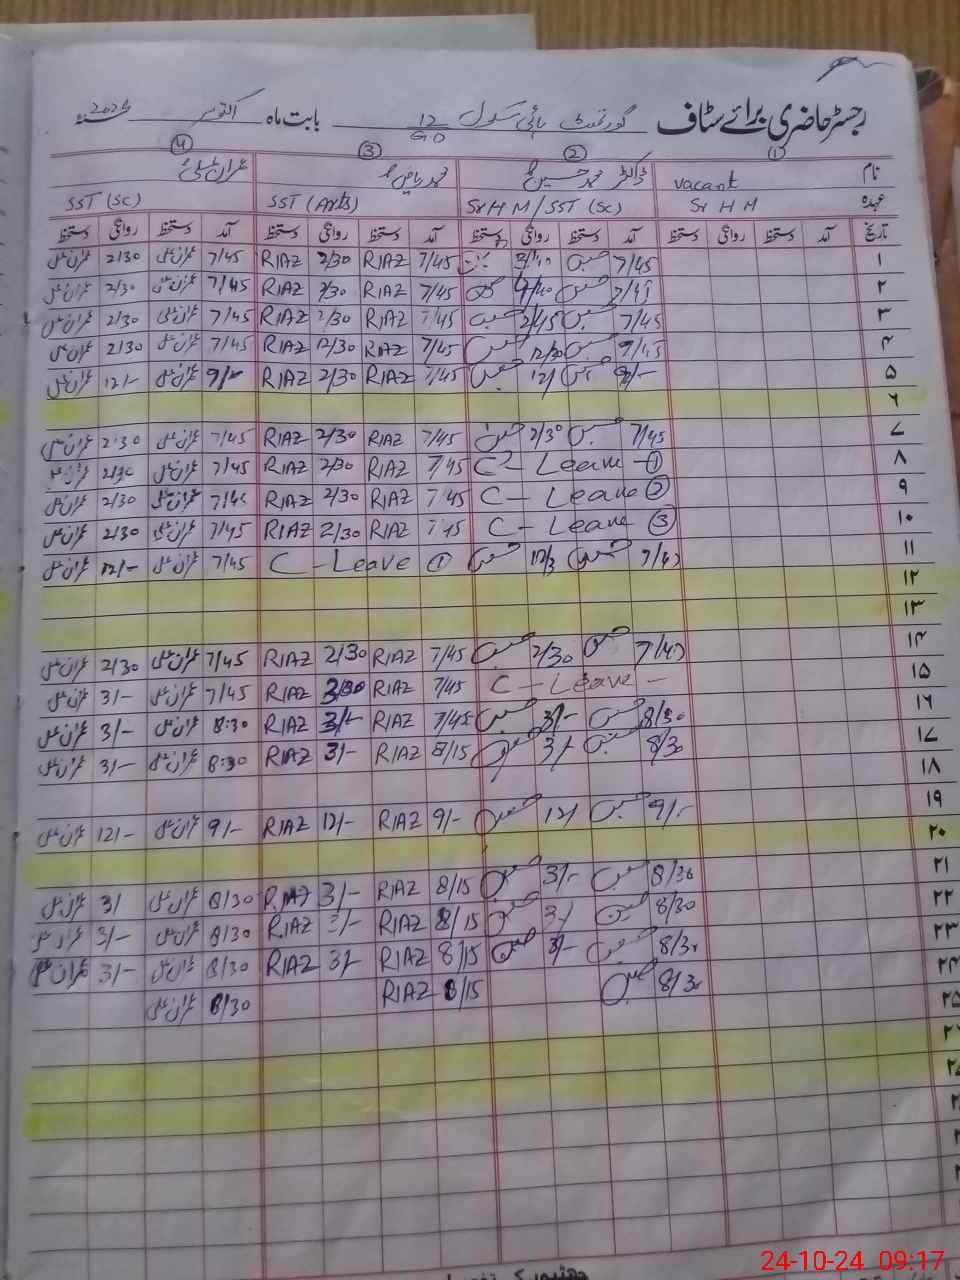 رجسٹر حاضری برائے سٹاف گورنمنٹ ہائی سکول 12 G.D بابت ماہ اکتوبر سنہ 2024
① ② ③ ④
نام vacant ڈاکٹر محمد حسین محمد ریاض عمران علی
عہدہ Sr H M Sr H M / SST (Sc) SST (Arts) SST (Sc)
تاریخ آمد دستخط روانگی دستخط آمد دستخط روانگی دستخط آمد دستخط روانگی دستخط آمد دستخط روانگی دستخط
۱ 7/45 حسین 7/45 RIAZ 2/30 RIAZ 7/45 عمران علی 2/30 عمران علی
۲ حسین 7/45 RIAZ 2/30 RIAZ 7/45 عمران علی 2/30 عمران علی
۳ 7/45 حسین 2/45 7/45 RIAZ 2/30 RIAZ 7/45 عمران علی 2/30 عمران علی
۴ حسین 7/45 RIAZ 12/30 RIAZ 7/45 عمران علی 2/30 عمران علی
۵ 9/- حسین 12/ حسین 7/45 RIAZ 2/30 RIAZ 9/- عمران علی 12/- عمران علی
۶
۷ 7/45 حسین 2/30 حسین 7/45 RIAZ 2/30 RIAZ 7/45 عمران علی 2:30 عمران علی
۸ C - Leave - ① 7/45 RIAZ 2/30 RIAZ 7/45 عمران علی 2/30 عمران علی
۹ C - Leave ② 7/45 RIAZ 2/30 RIAZ 7/45 عمران علی 2/30 عمران علی
۱۰ C - Leave ③ 7/45 RIAZ 2/30 RIAZ 7/45 عمران علی 2/30 عمران علی
۱۱ 7/45 حسین حسین C - Leave ① 7/45 عمران علی 12/- عمران علی
۱۲
۱۳
۱۴ 7/45 حسین 2/30 حسین 7/45 RIAZ 2/30 RIAZ 7/45 عمران علی 2/30 عمران علی
۱۵ C - Leave - 7/45 RIAZ RIAZ 7/45 عمران علی 3/- عمران علی
۱۶ 8/30 حسین 3/- حسین 7/45 RIAZ 3/- RIAZ 8:30 عمران علی 3/- عمران علی
۱۷ 8/30 حسین 3/- حسین 8/15 RIAZ 3/- RIAZ 8:30 عمران علی 3/- عمران علی
۱۸
۱۹ 9/- حسین 12/ حسین 9/- RIAZ 12/- RIAZ 9/- عمران علی 12/- عمران علی
۲۰
۲۱ 8/30 حسین 3/- حسین 8/15 RIAZ 3/- RIAZ 8/30 عمران علی 3/ عمران علی
۲۲ 8/30 حسین 3/ حسین 8/15 RIAZ 3/- RIAZ 8/30 عمران علی 3/- عمران علی
۲۳ 8/30 حسین 3/- حسین 8/15 RIAZ 3/- RIAZ 8/30 عمران علی 3/- عمران علی
۲۴ 8/30 حسین 8/15 RIAZ 8/30 عمران علی
۲۵
24-10-24 09:17